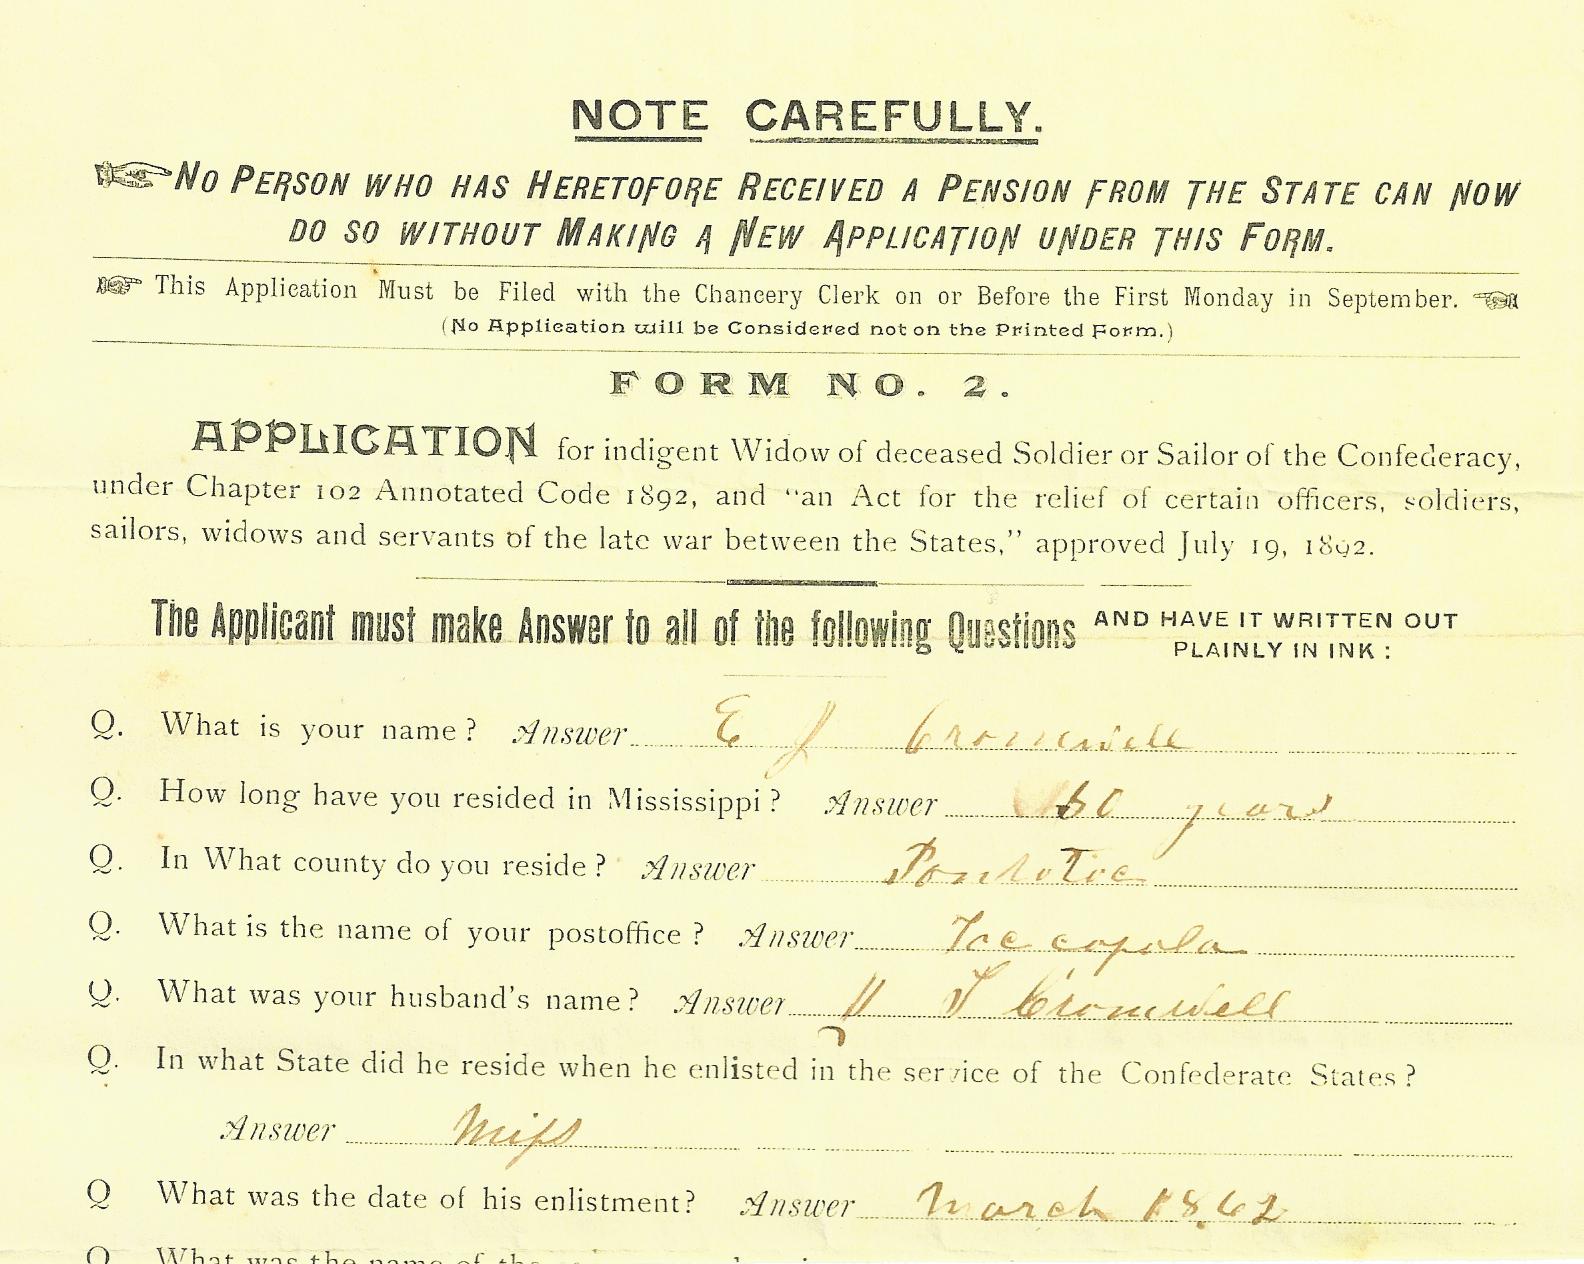 NOTE CAREFULLY.
No Person who has Heretofore Received a Pension from the State can now
do so without Making a New Application under this Form.
This Application Must be Filed with the Chancery Clerk on or Before the First Monday in September.
(No Application will be Considered not on the Printed Form.)
FORM NO. 2.
APPLICATION for indigent Widow of deceased Soldier or Sailor of the Confederacy,
under Chapter 102 Annotated Code 1892, and "an Act for the relief of certain officers, soldiers,
sailors, widows and servants of the late war between the States," approved July 19, 1892.
The Applicant must make Answer to all of the following Questions AND HAVE IT WRITTEN OUT
PLAINLY IN INK :
Q. What is your name? Answer E J Cromwell
Q. How long have you resided in Mississippi? Answer years
Q. In What county do you reside? Answer Pontotoc
Q. What is the name of your postoffice? Answer Toccopola
Q. What was your husband's name? Answer Cromwell
Q. In what State did he reside when he enlisted in the service of the Confederate States?
Answer Miss
Q What was the date of his enlistment? Answer March 1862
Q What was the name of the